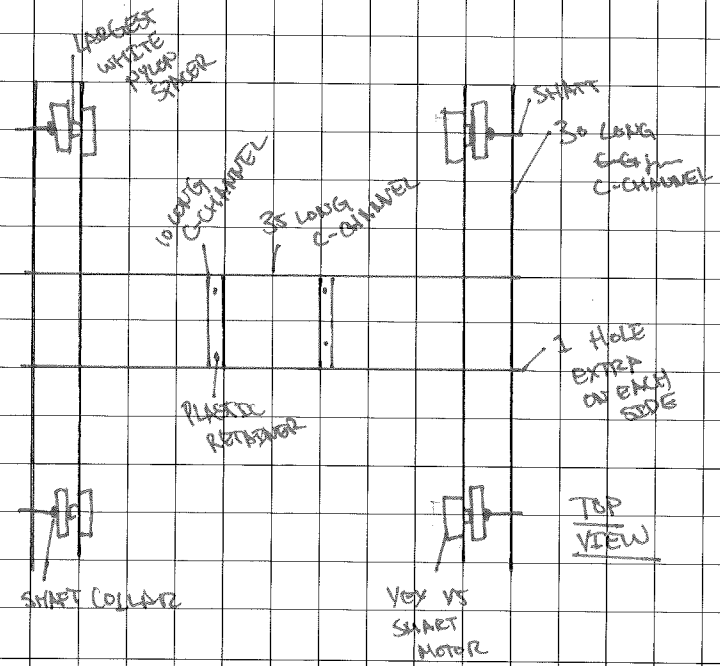 LARGEST
WHITE
NYLON
SPACER
SHAFT
30 LONG
C-CHANNEL
10 LONG
C-CHANNEL
35 LONG
C-CHANNEL
1 HOLE
EXTRA
ON EACH
SIDE
PLASTIC
RETAINER
TOP
VIEW
SHAFT COLLAR
VEX V5
SMART
MOTOR